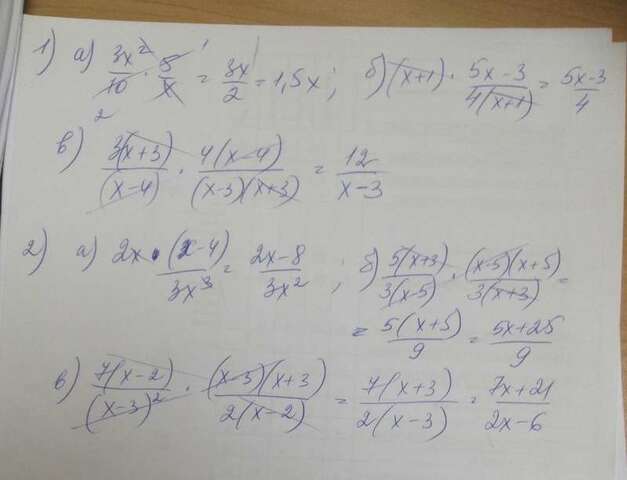 1) а) 3x²/10 · 5/x = 3x/2 = 1,5x; б) (x+1) · 5x-3/4(x+1) = 5x-3/4
в) 3(x+3)/(x-4) · 4(x-4)/(x-3)(x+3) = 12/x-3
2) а) 2x · (x-4)/3x³ = 2x-8/3x²; б) 5(x+3)/3(x-5) · (x-5)(x+5)/3(x+3) =
= 5(x+5)/9 = 5x+25/9
в) 7(x-2)/(x-3)² · (x-3)(x+3)/2(x-2) = 7(x+3)/2(x-3) = 7x+21/2x-6